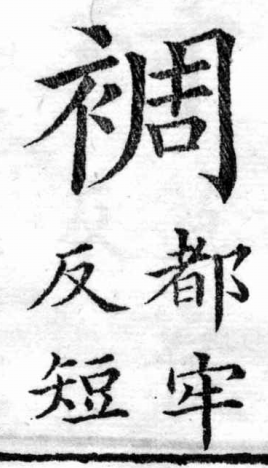 裯
都牢
反短